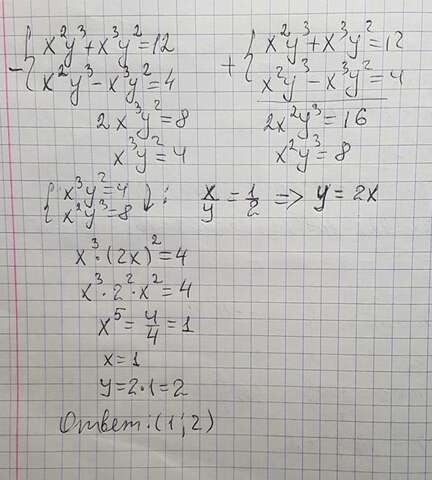 - { x²y³+x³y²=12
x²y³-x³y²=4
2x³y²=8
x³y²=4
+ { x²y³+x³y²=12
x²y³-x³y²=4
2x²y³=16
x²y³=8
{ x³y²=4
x²y³=8 ↓: x/y = 1/2 => y=2x
x³·(2x)²=4
x³·2²·x²=4
x⁵=4/4=1
x=1
y=2·1=2
Ответ:(1;2)